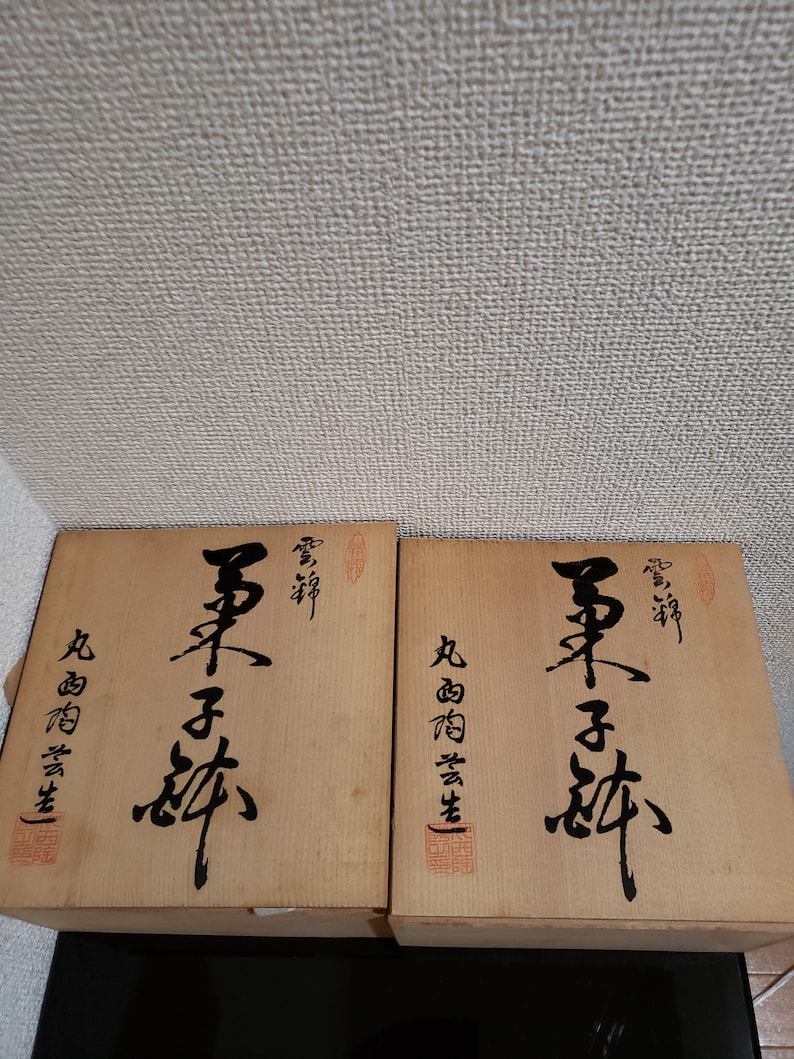 雲錦
菓子鉢
丸西陶芸造
雲錦
菓子鉢
丸西陶芸造